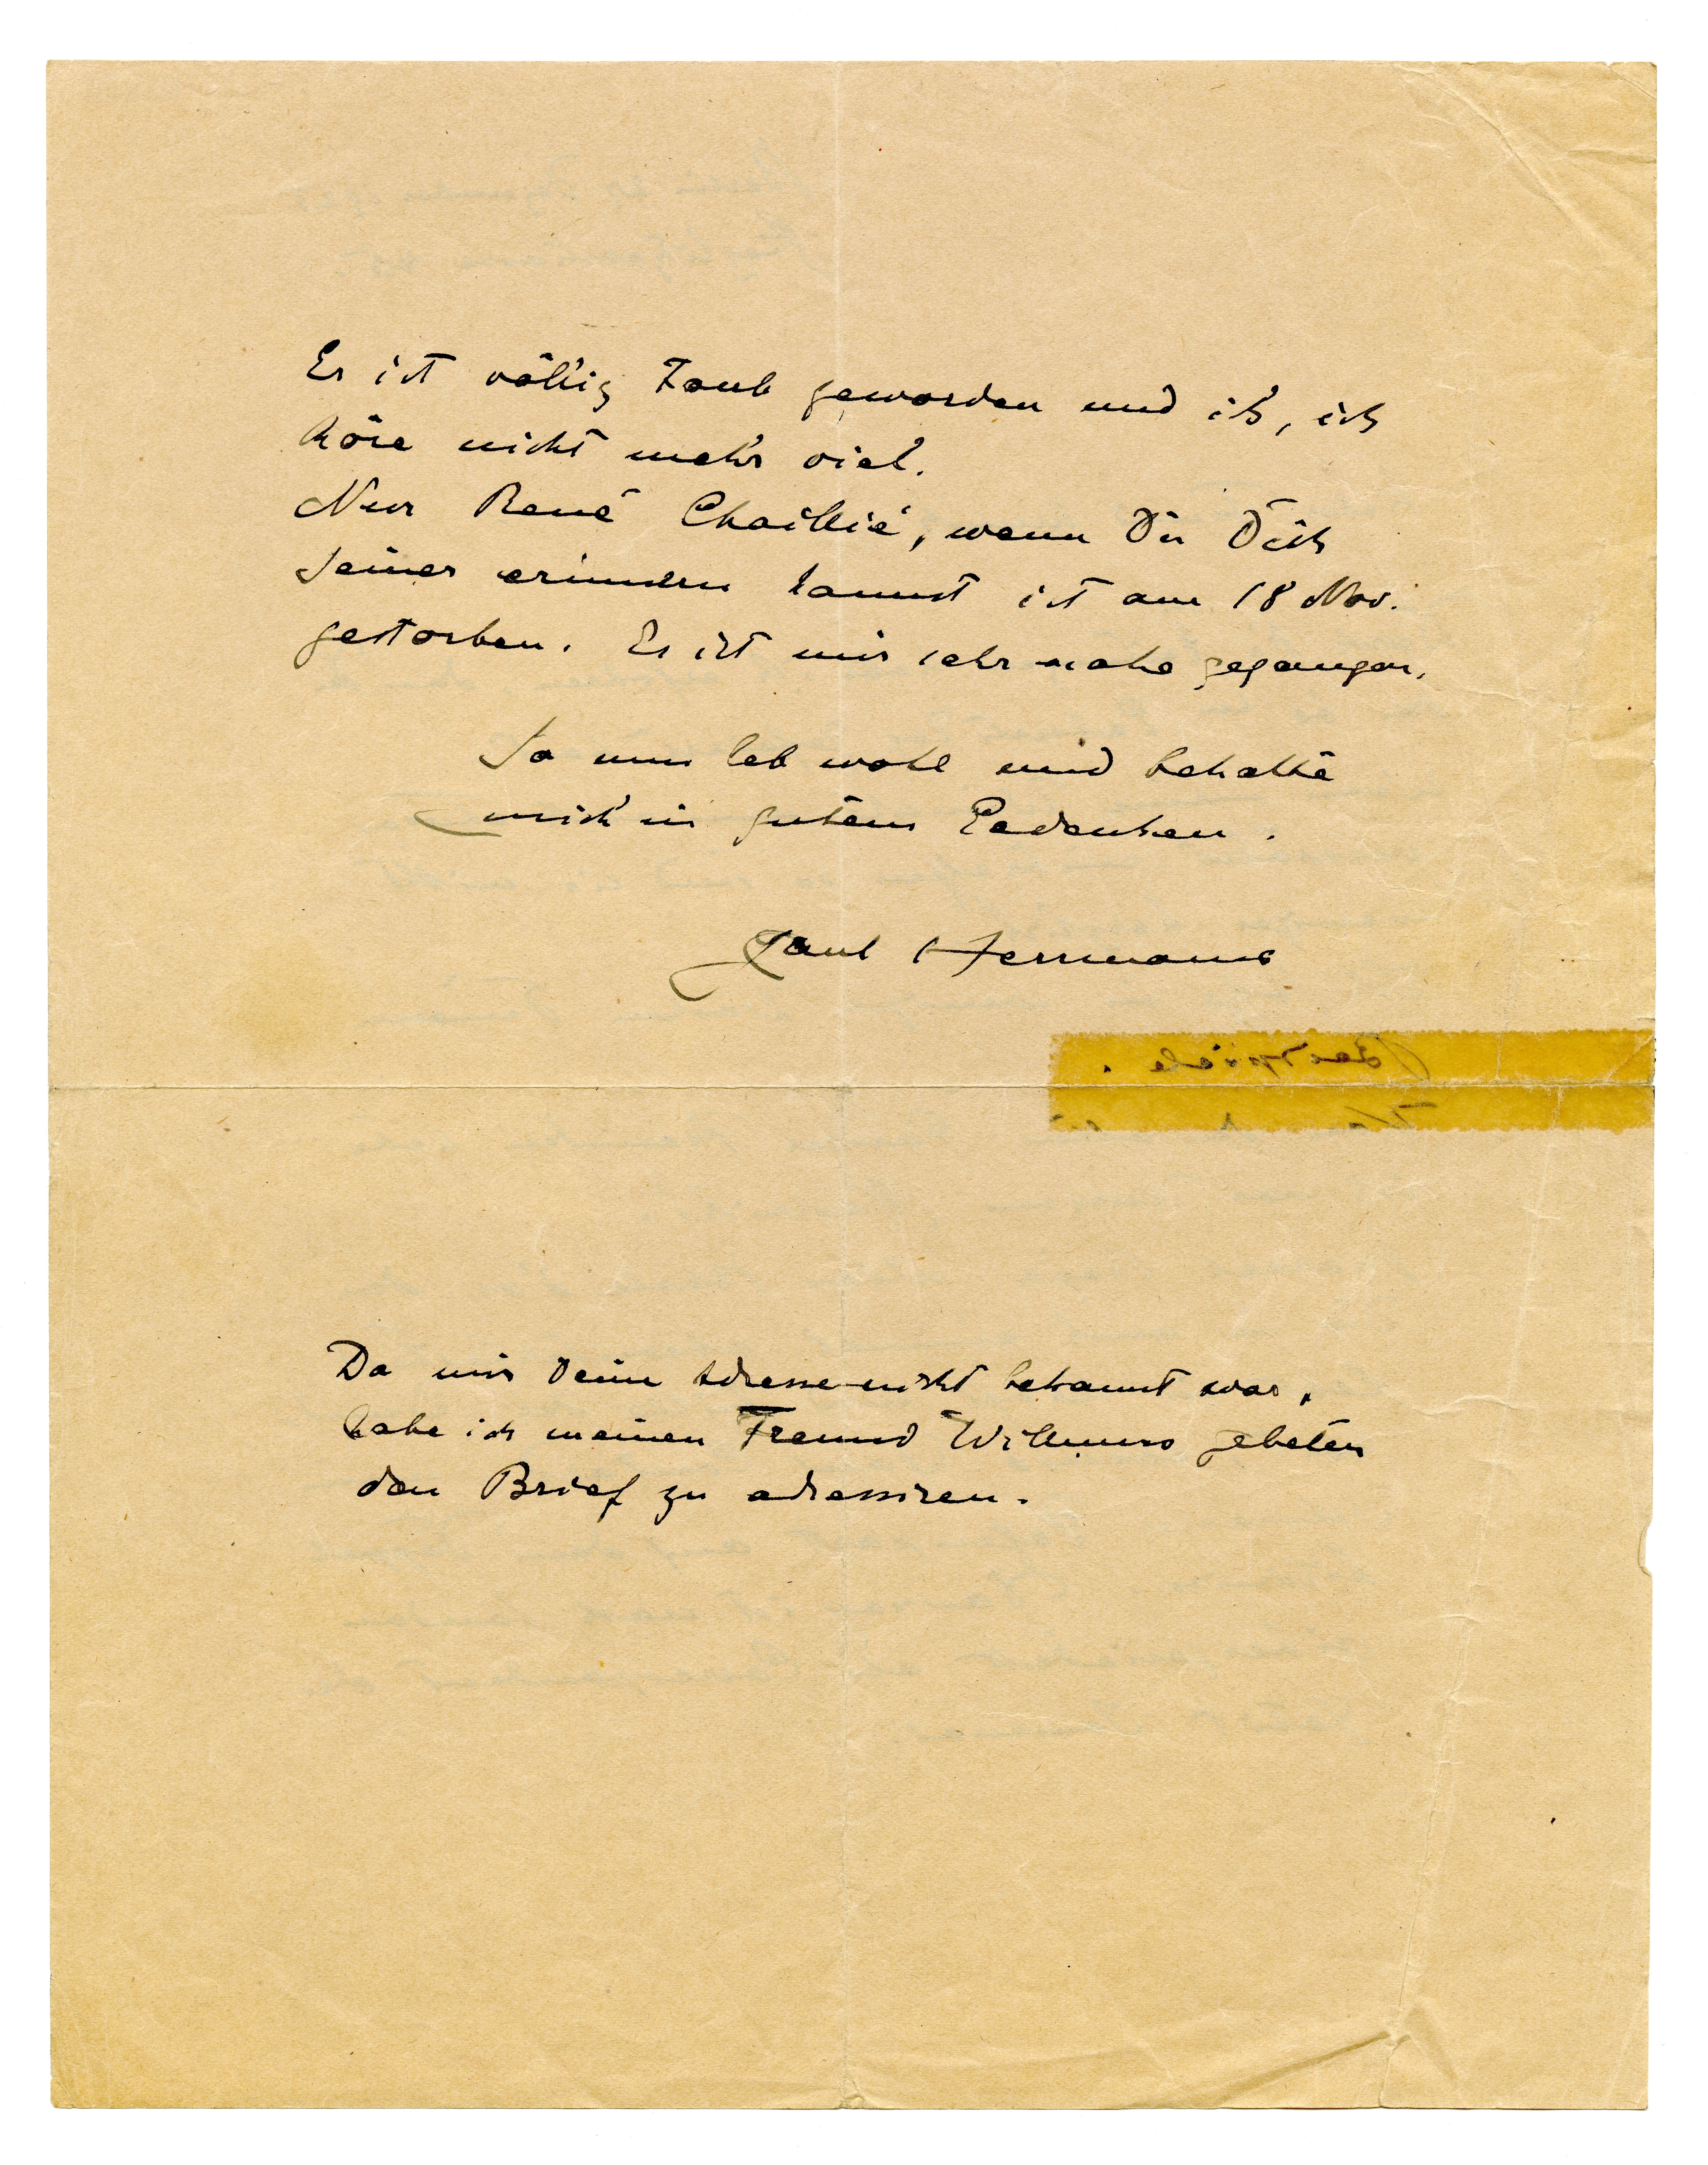 Er ist völlig Taub geworden und ich, ich
höre nicht mehr viel.
Nur René Chaillié, wenn Du Dich
seiner erinnern kannst ist am 18 Nov.
gestorben. Es ist mir sehr nahe gegangen.
So nun leb wohl und behalte
mich in gutem Gedenken.
Paul Herrmann
Da mir Deine Adresse nicht bekannt war,
habe ich meinen Freund Willumns gebeten
den Brief zu adressiren.